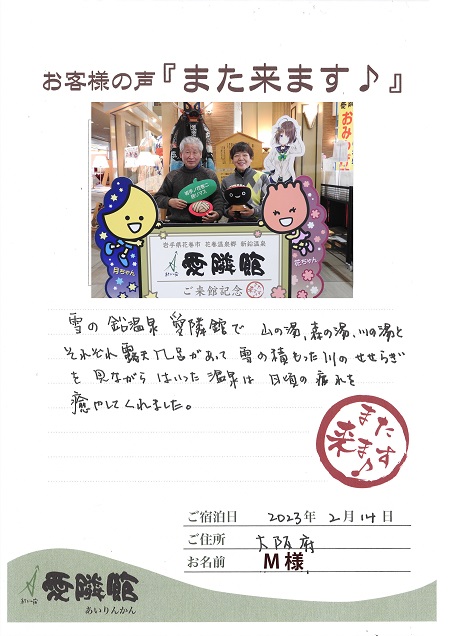 お客様の声『また来ます♪』
おみ
岩手ノ花巻ニ
居リマス
月ちゃん
花ちゃん
岩手県花巻市 花巻温泉郷 新鉛温泉
愛隣館
ご来館記念
雪の鉛温泉 愛隣館で 山の湯、森の湯、川の湯と
それぞれ露天風呂があって雪の積もった川のせせらぎ
を見ながらはいった温泉は日頃の疲れを
癒やしてくれました。
また
来ます♪
ご宿泊日 2023年 2月14日
ご住所 大阪府
お名前 M様
愛隣館
あいりんかん